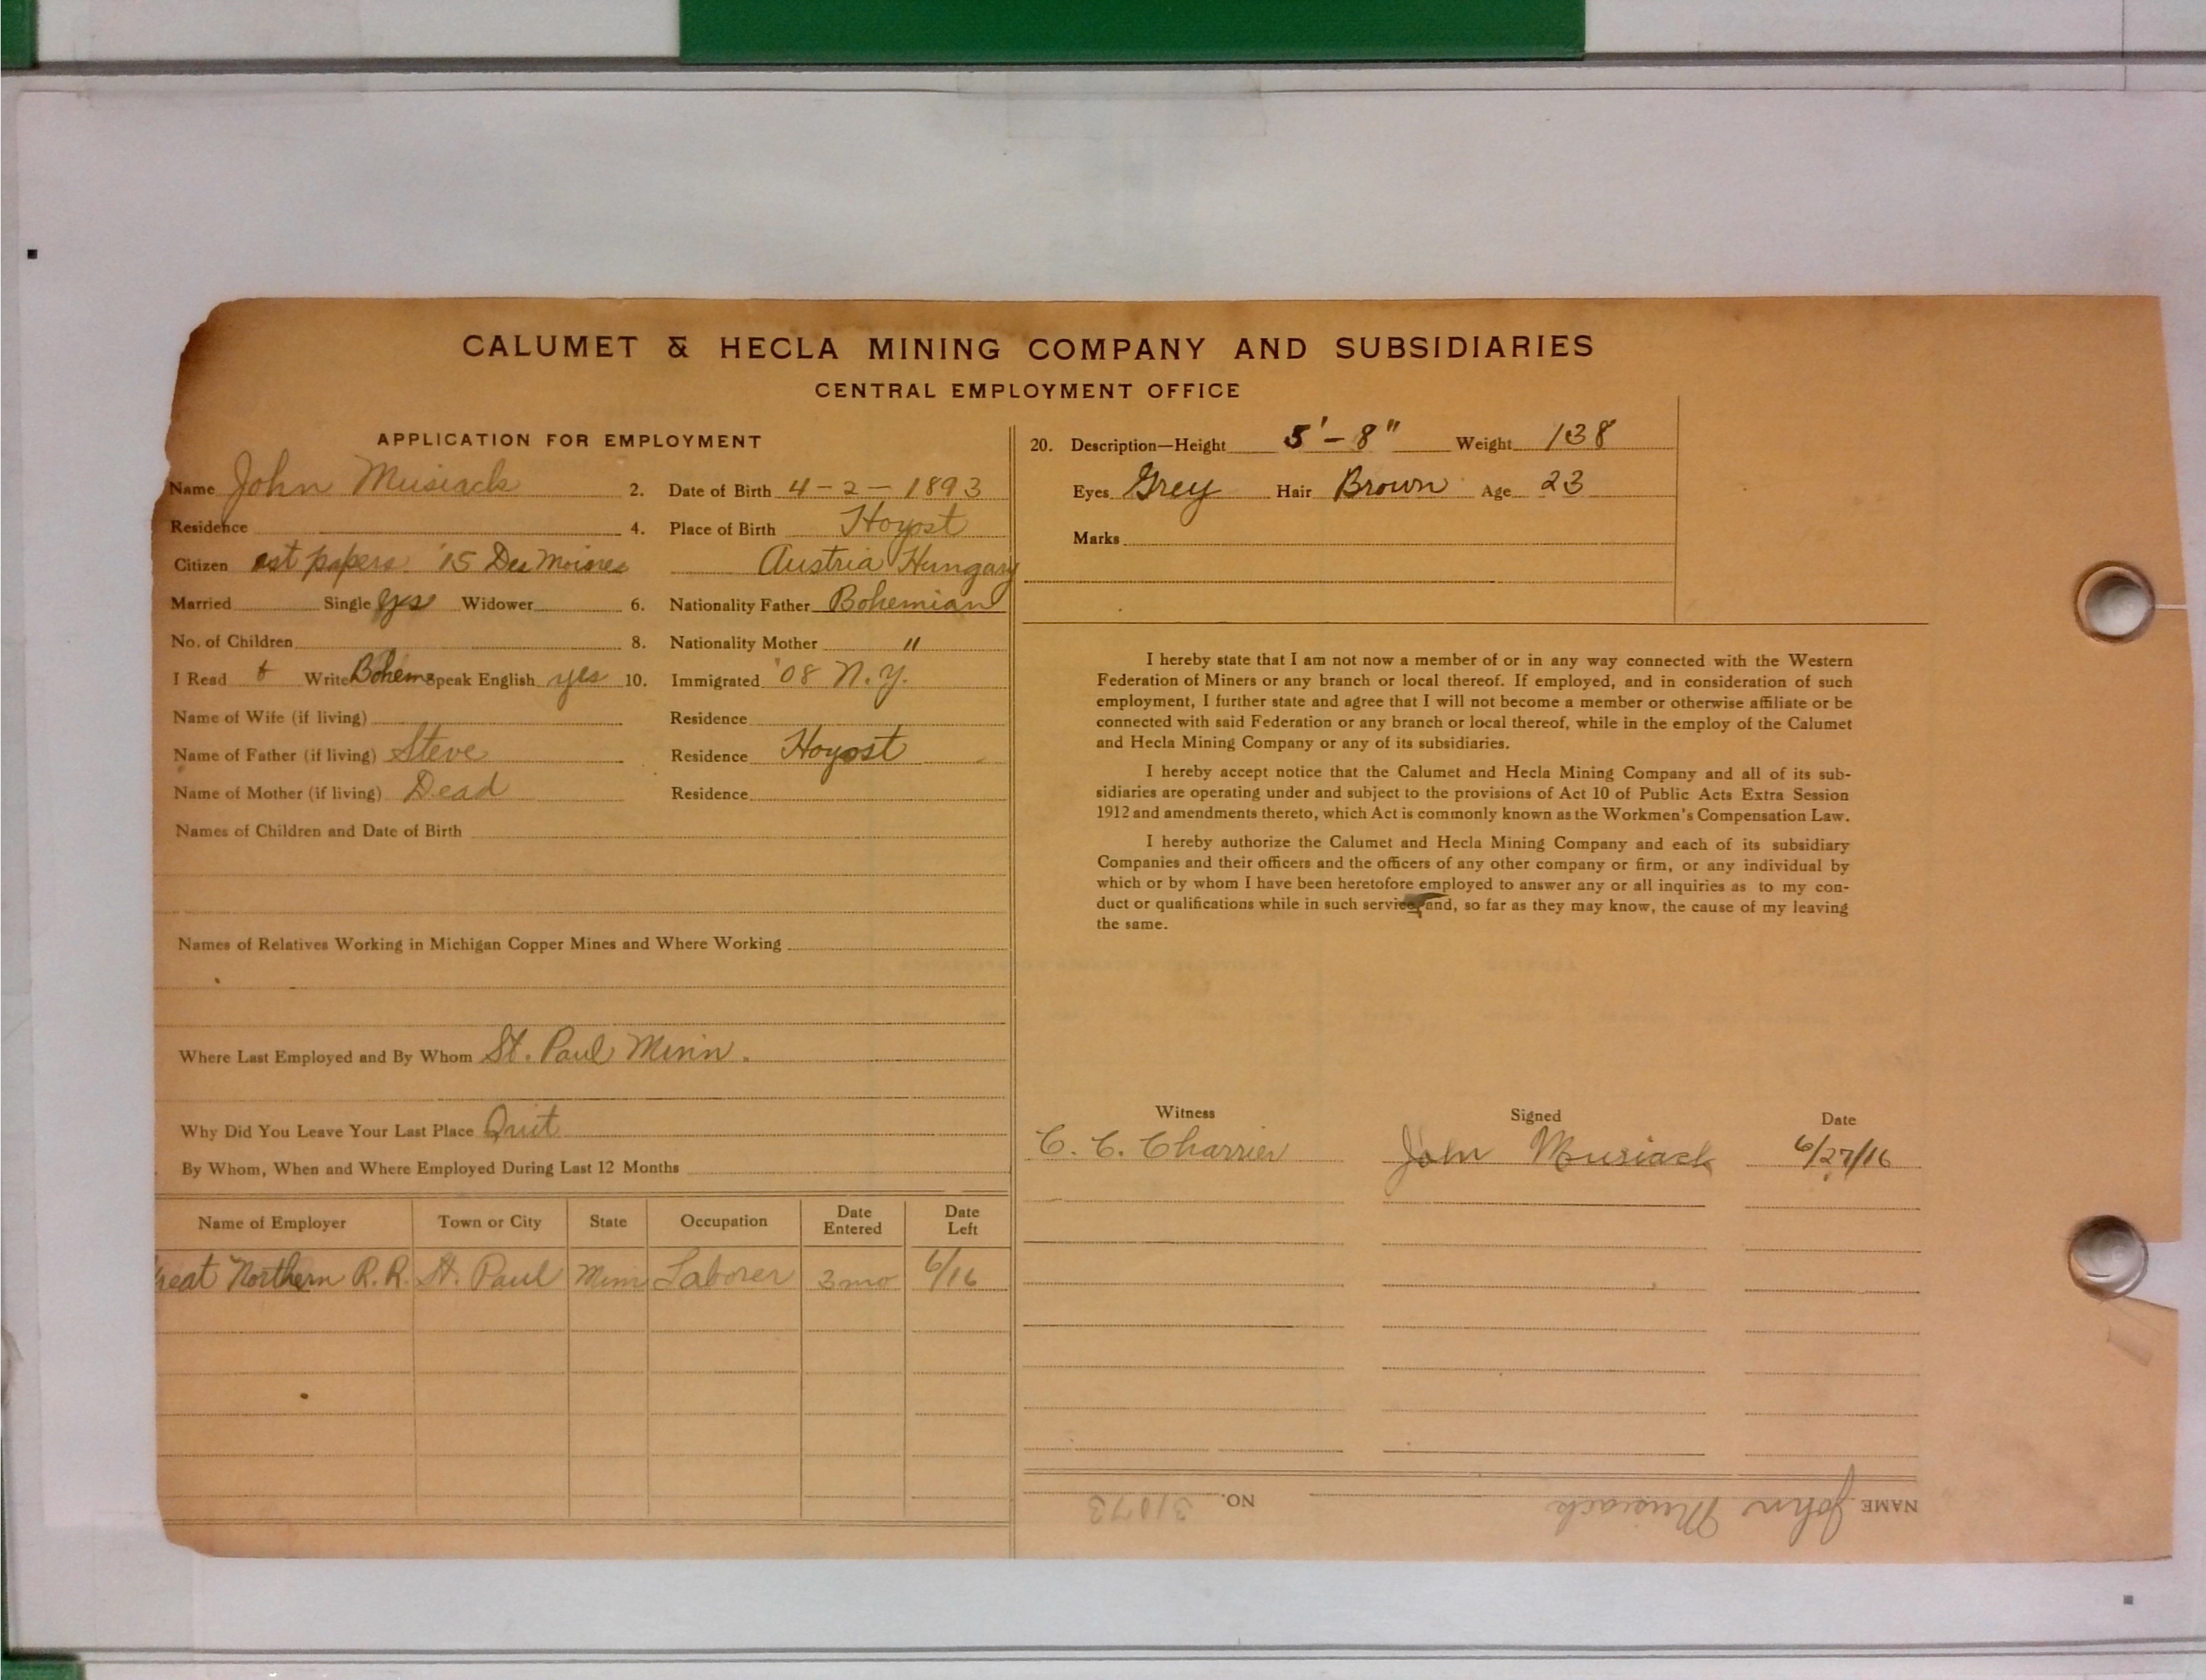 CALUMET & HECLA MINING COMPANY AND SUBSIDIARIES
CENTRAL EMPLOYMENT OFFICE
APPLICATION FOR EMPLOYMENT
Name John Musiack 2. Date of Birth 4-2-1893
Residence 4. Place of Birth Hoyost
Citizen 1st papers '15 Des Moines Austria Hungary
Married Single yes Widower 6. Nationality Father Bohemian
No. of Children 8. Nationality Mother "
I Read + Write Bohem Speak English yes 10. Immigrated '08 N.Y.
Name of Wife (if living) Residence
Name of Father (if living) Steve Residence Hoyost
Name of Mother (if living) Dead Residence
Names of Children and Date of Birth
Names of Relatives Working in Michigan Copper Mines and Where Working
Where Last Employed and By Whom St. Paul Minn.
Why Did You Leave Your Last Place Quit
By Whom, When and Where Employed During Last 12 Months
Name of Employer Town or City State Occupation Date Entered Date Left
reat Northern R.R. St. Paul Minn Laborer 3 mo 6/16
20. Description—Height 5'-8" Weight 138
Eyes Grey Hair Brown Age 23
Marks
I hereby state that I am not now a member of or in any way connected with the Western
Federation of Miners or any branch or local thereof. If employed, and in consideration of such
employment, I further state and agree that I will not become a member or otherwise affiliate or be
connected with said Federation or any branch or local thereof, while in the employ of the Calumet
and Hecla Mining Company or any of its subsidiaries.
I hereby accept notice that the Calumet and Hecla Mining Company and all of its sub-
sidiaries are operating under and subject to the provisions of Act 10 of Public Acts Extra Session
1912 and amendments thereto, which Act is commonly known as the Workmen's Compensation Law.
I hereby authorize the Calumet and Hecla Mining Company and each of its subsidiary
Companies and their officers and the officers of any other company or firm, or any individual by
which or by whom I have been heretofore employed to answer any or all inquiries as to my con-
duct or qualifications while in such service, and, so far as they may know, the cause of my leaving
the same.
Witness Signed Date
C. C. Charrier John Musiack 6/27/16
NAME John Musiack NO. 31073